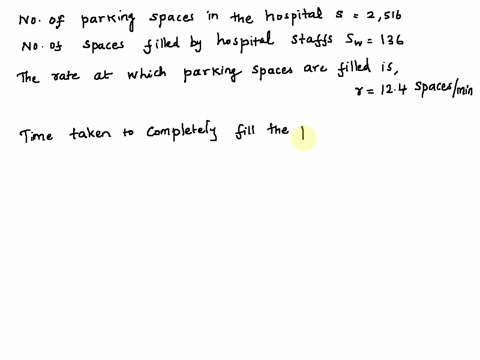 No. of parking spaces in the hospital s = 2,516
No. of spaces filled by hospital staffs Sw = 136
The rate at which parking spaces are filled is,
r = 12.4 spaces/min
Time taken to completely fill the